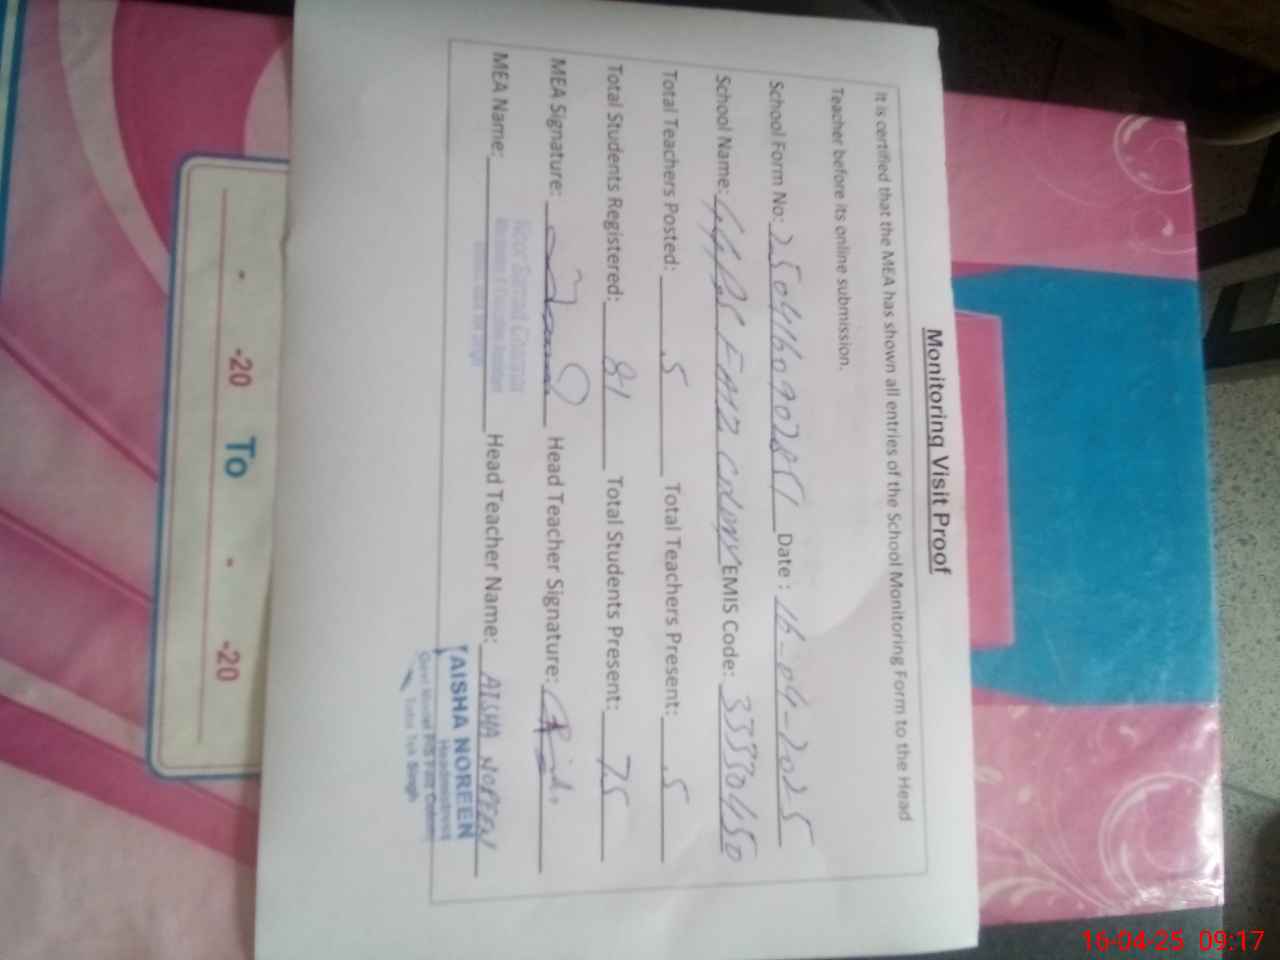 Monitoring Visit Proof
It is certified that the MEA has shown all entries of the School Monitoring Form to the Head
Teacher before its online submission.
School Form No: Date : 16-04-2025
School Name: FAIZ COLONY EMIS Code: 33330450
Total Teachers Posted: 5 Total Teachers Present: 5
Total Students Registered: 81 Total Students Present: 75
MEA Signature: Head Teacher Signature:
MEA Name: Head Teacher Name: AISHA NOREEN
AISHA NOREEN
Headmistress
Toba Tek Singh
- -20 To - -20
16-04-25 09:17